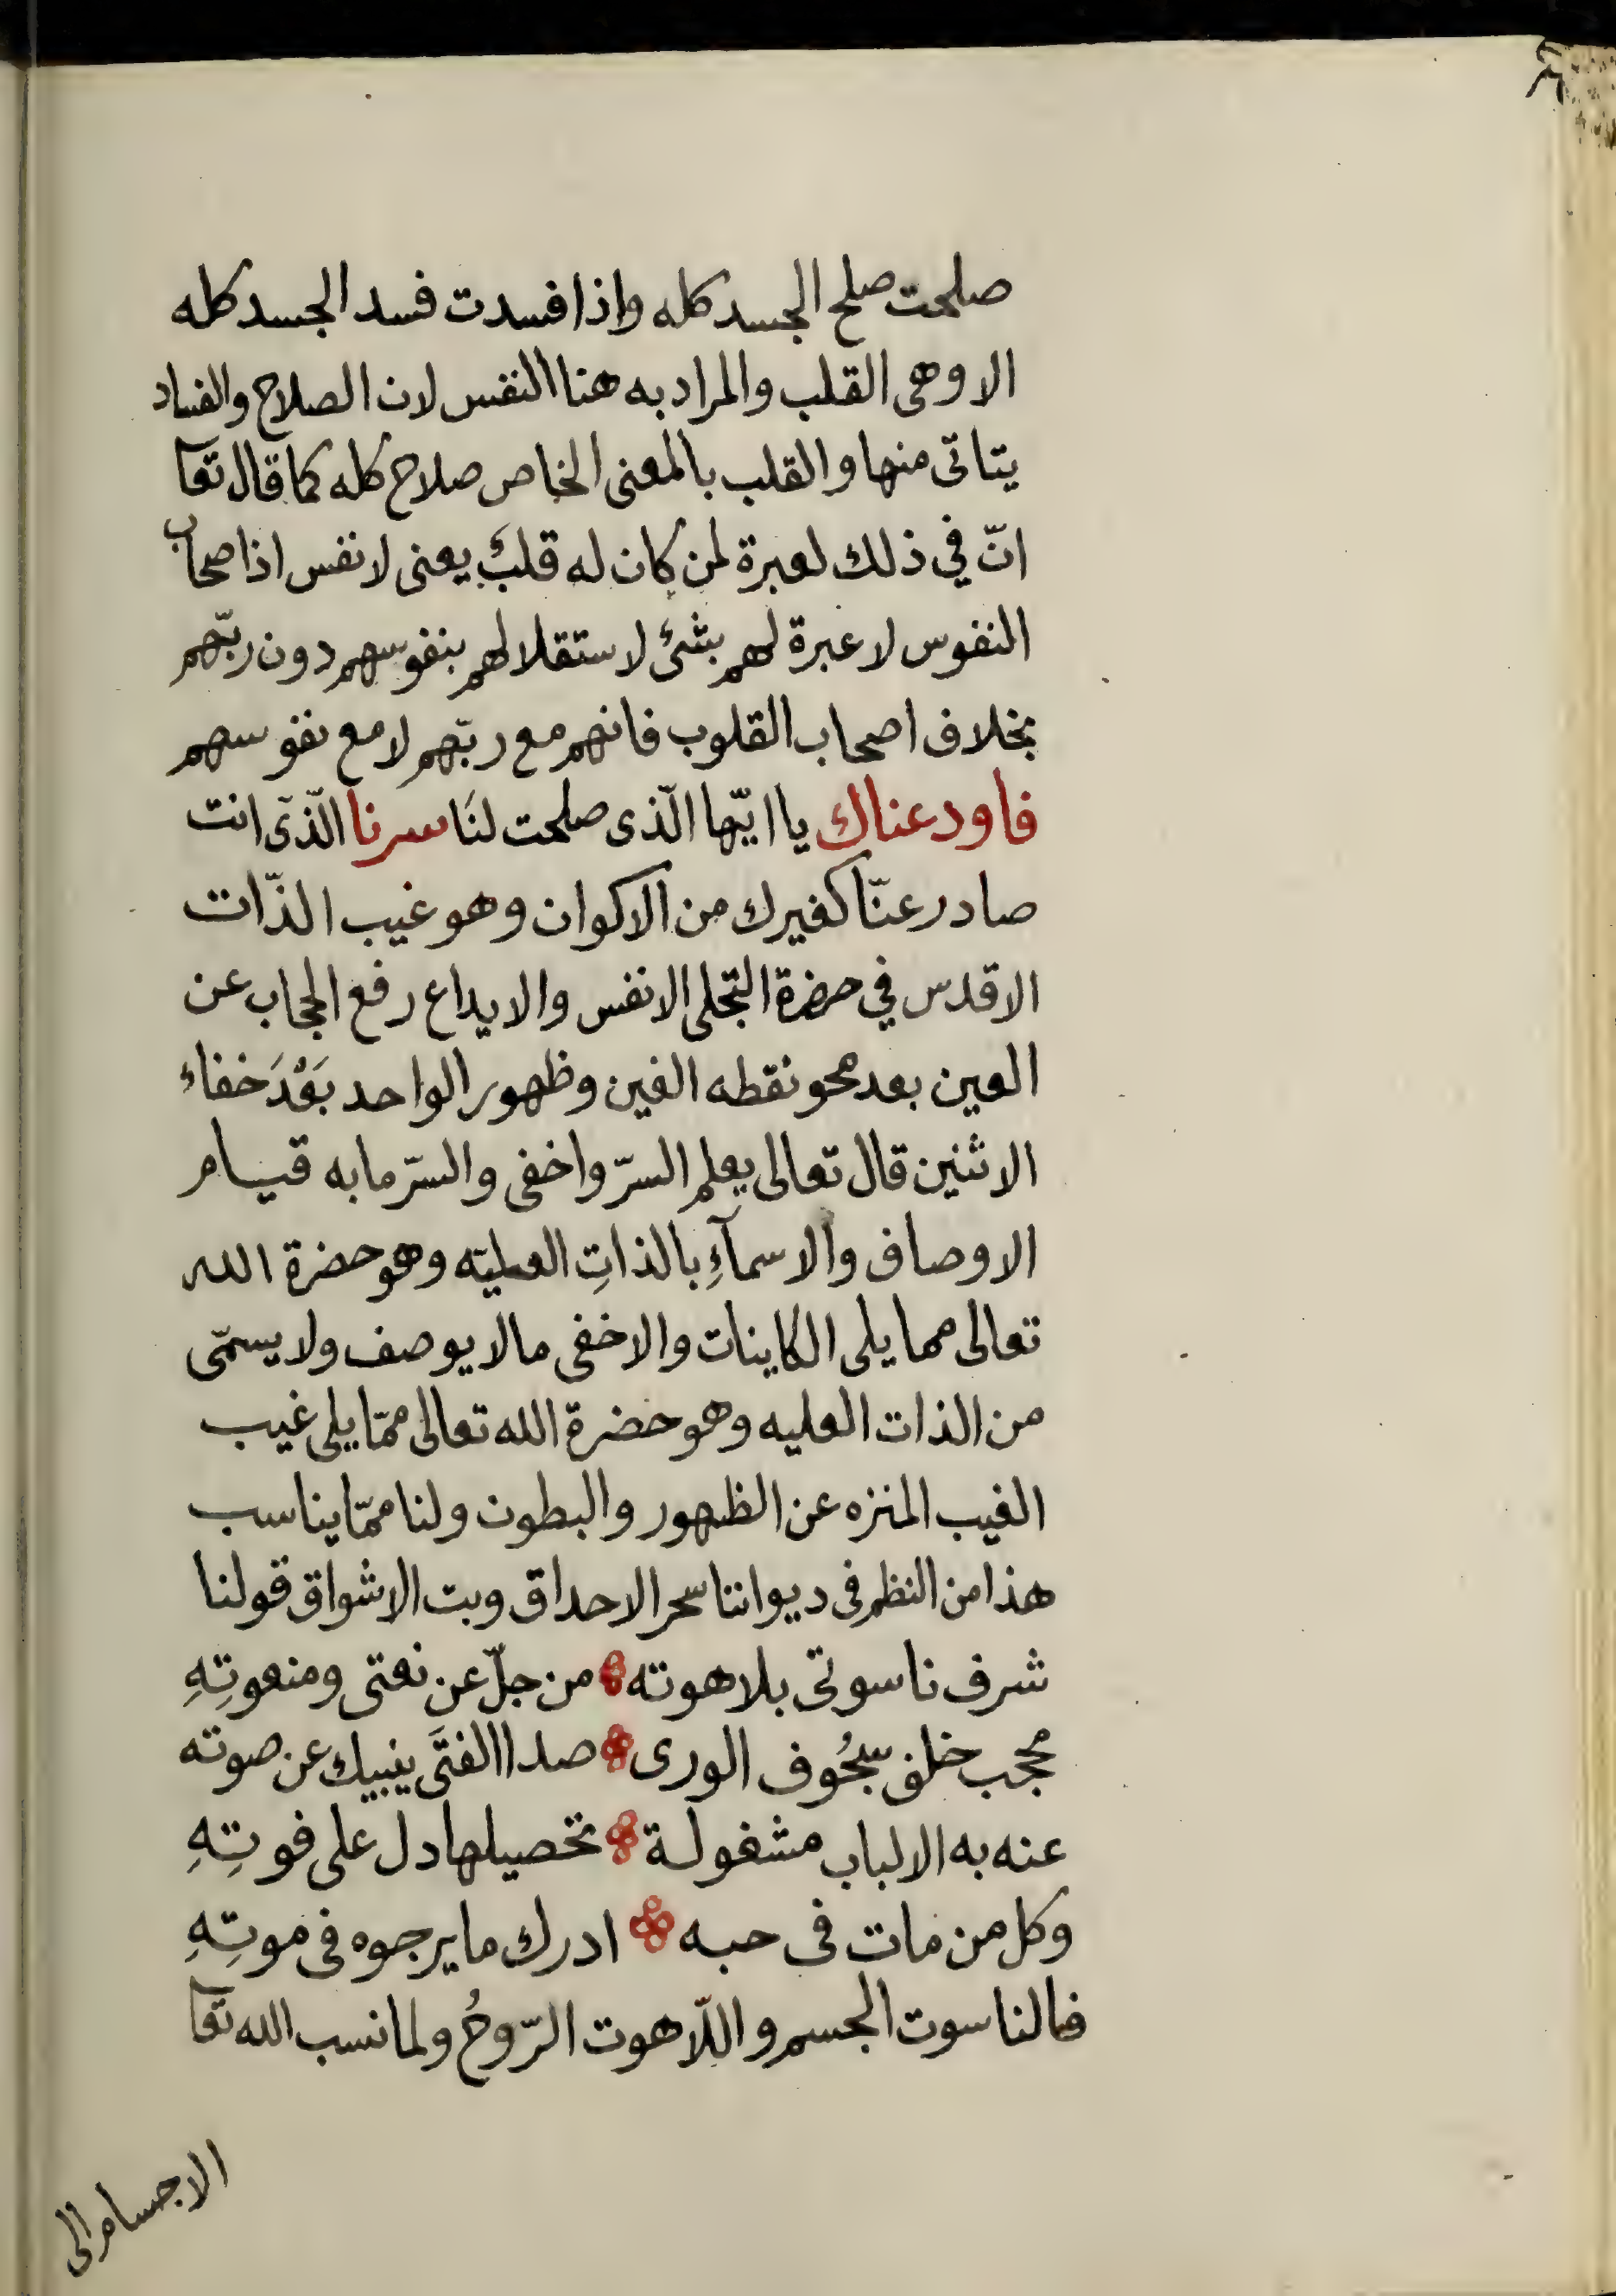 صلحت صلح الجسد كله واذا فسدت فسد الجسد كله
الا وهى القلب والمراد به هنا النفس لان الصلاح والفساد
يتاتى منها والقلب بالمعنى الخاص صلاح كله كما قال تعا
انّ في ذلك لعبرة لمن كان له قلبٌ يعنى لا نفس اذا صحاب
النفوس لا عبرة لهم بشئ لاستقلالهم بنفوسهم دون ربّهم
بخلاف اصحاب القلوب فانهم مع ربّهم لا مع نفوسهم
فاودعناك يا ايّها الّذى صلحت لنَا سرنا الّذى انت
صادر عنّا كغيرك من الاكوان وهو غيب الذّات
الاقدس في حضرة التجلى الانفس والايداع رفع الحجاب عن
العين بعد محو نقطه الغين وظهور الواحد بَعْدَ خفاء
الاثنين قال تعالى يعلم السرّ واخفى والسرّ ما به قيام
الاوصاف والاسمآءِ بالذاتِ العليّه وهو حضرة الله
تعالى مما يلى الكاينات والاخفى ما لا يوصف ولا يسمّى
من الذات العليه وهو حضرة الله تعالى ممّا يلى غيب
الغيب المنزه عن الظهور والبطون ولنا ممّا يناسب
هذا من النظم فى ديواننا سحر الاحداق وبت الاشواق قولنا
شرف ناسوتى بلاهوته من جلّ عن نعتى ومنعوتِهِ
محجب خلف سجُوف الورى صدا الفتَى ينبيك عن صوته
عنه به الالباب مشغولة تحصيلها دل على فوتِهِ
وكل من مات فى حبه ادرك ما يرجوه فى موتِهِ
فالناسوت الجسم واللّاهوت الرّوحُ ولما نسب الله تعا
الاجسام الى